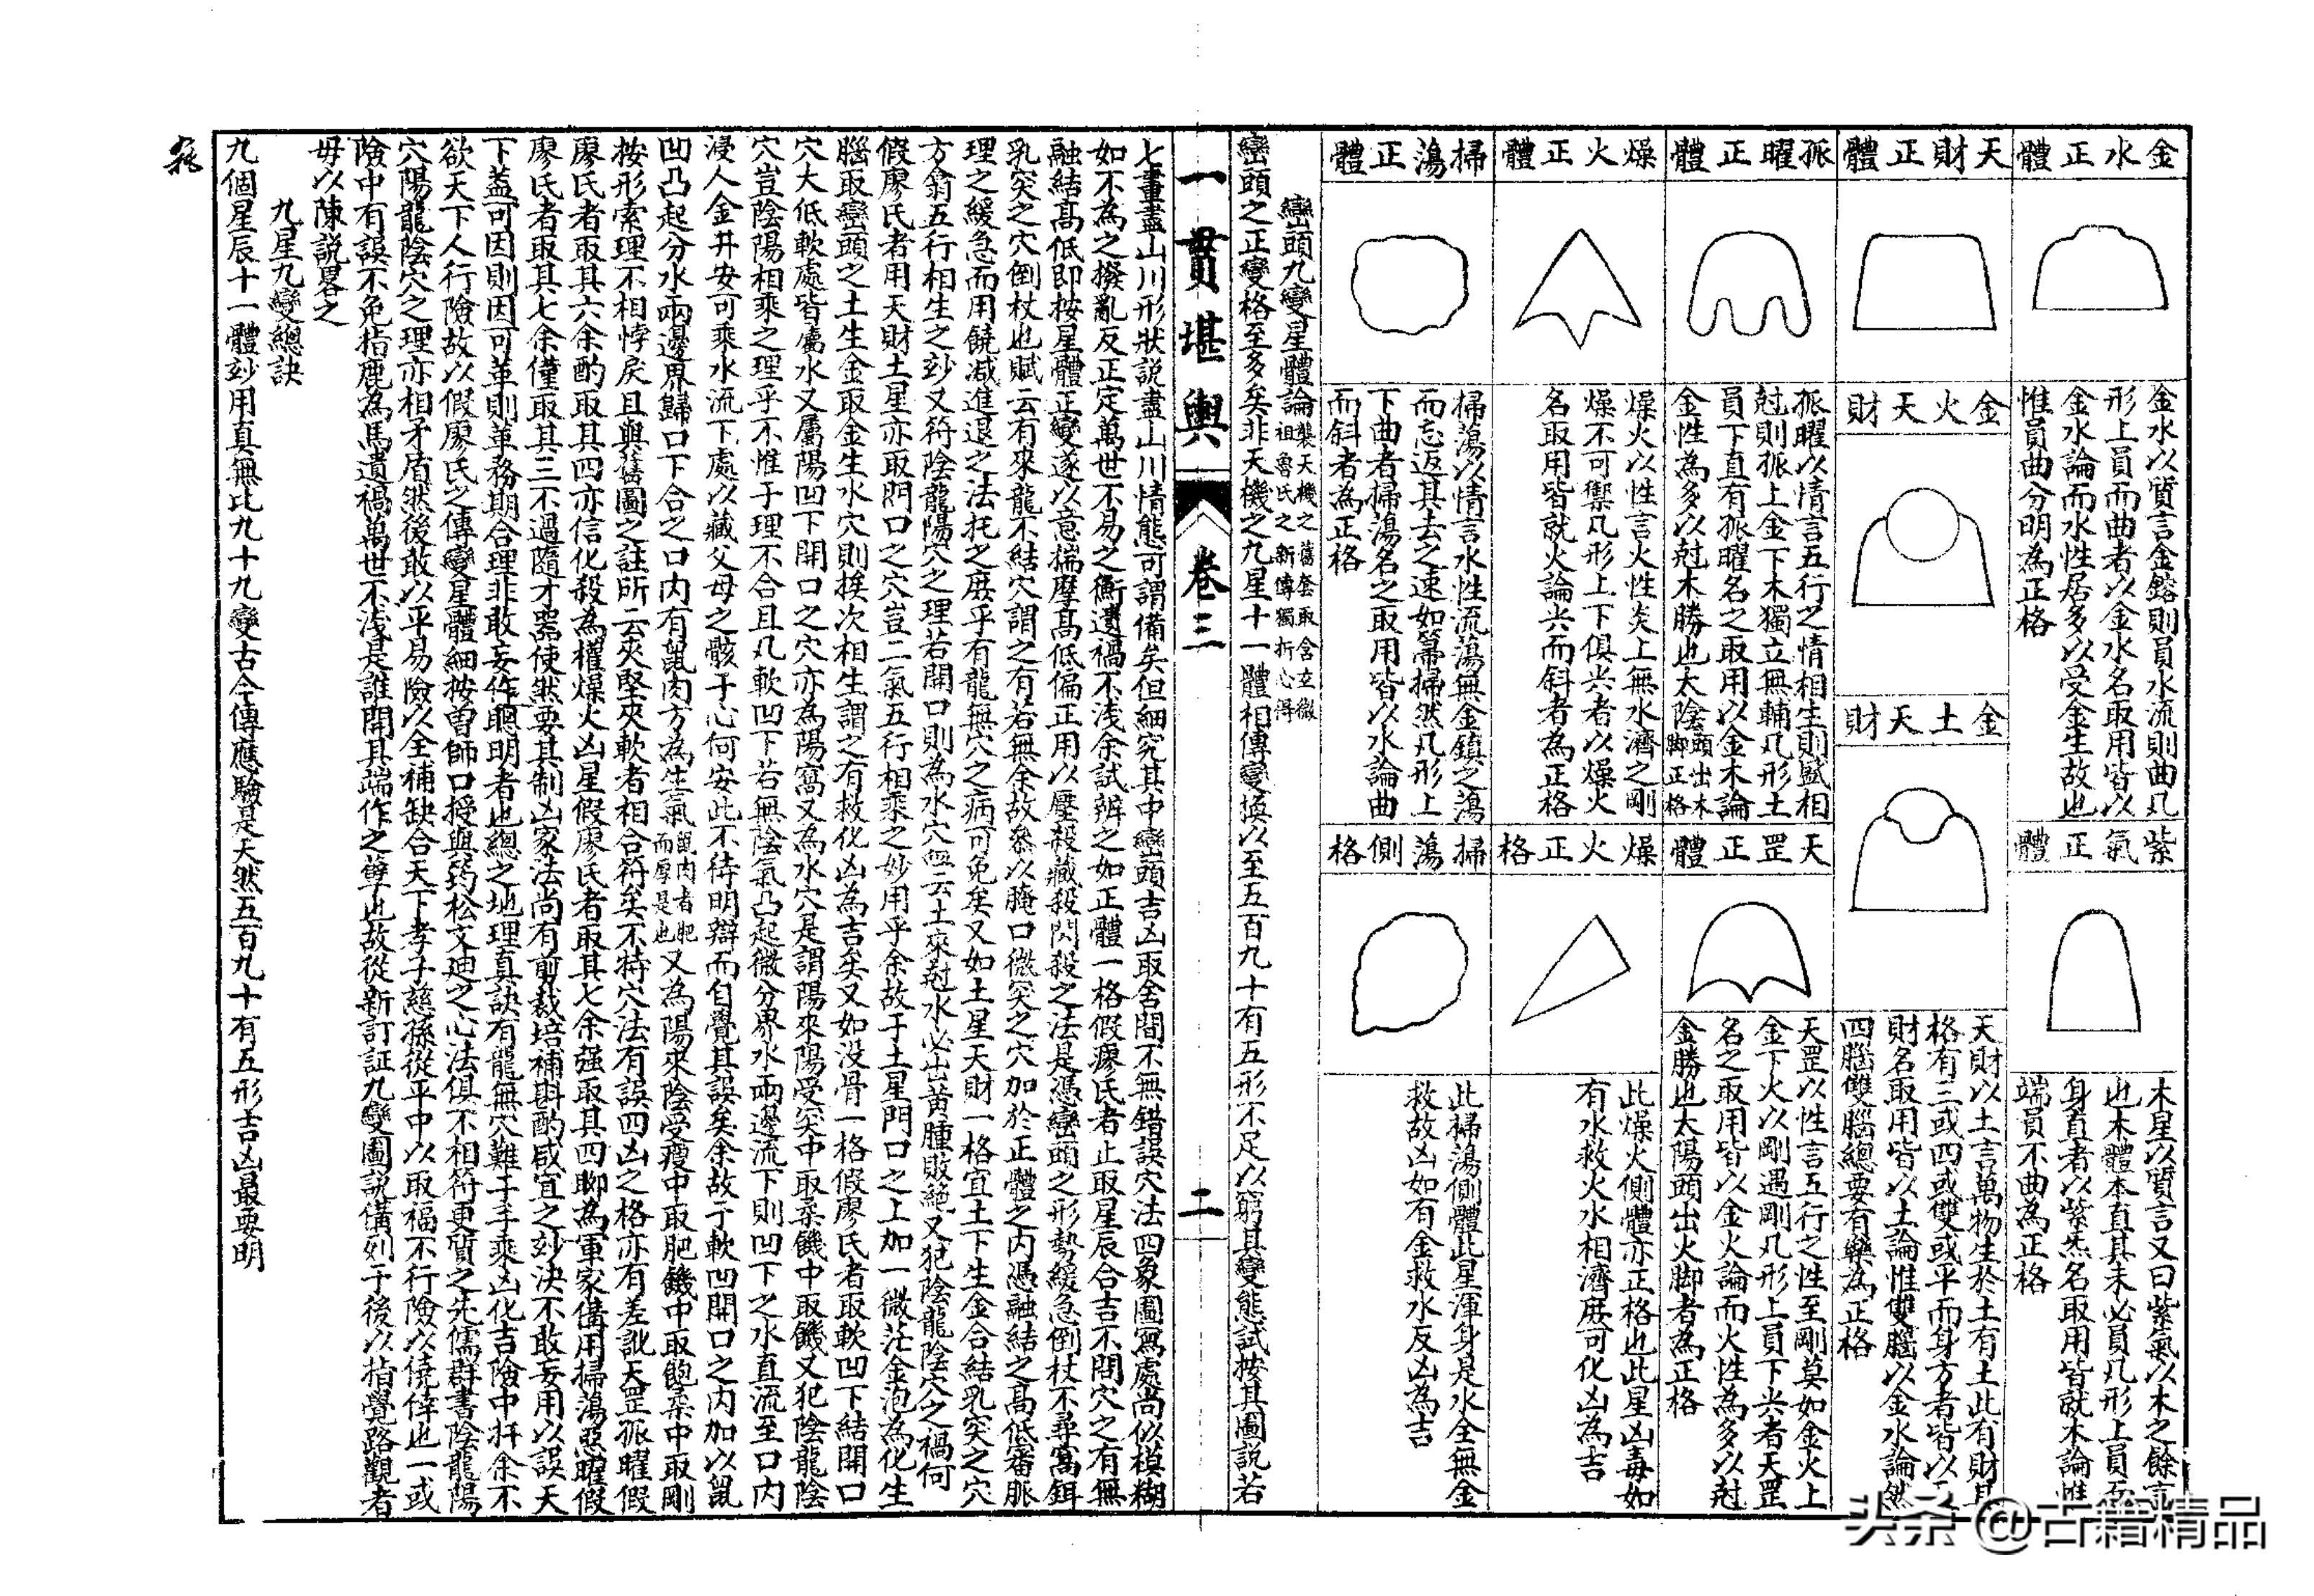 金水正體
金水以質言金鎔則員水流則曲凡
形上員而曲者以金水名取用皆以
金水論而水性居多以受金生故也
惟員曲分明為正格
紫氣正體
木星以質言又曰紫氣以木之餘言
也木體本直其末必員凡形上員而
身直者以紫炁名取用皆就木論惟
端員不曲為正格
天財正體
金火天財
金土天財
天財以土言萬物生於土有土此有財其
格有三或四或雙或平而身方者皆以天
財名取用皆以土論惟雙腦以金水論然
四腦雙腦總要有樂為正格
孤曜正體
孤曜以情言五行之情相生則盛相
尅則孤上金下木獨立無輔凡形土
員下直有孤曜名之取用以金木論
金性為多以尅木勝也太陰頭出木脚正格
天罡正體
天罡以性言五行之性至剛莫如金火上
金下火以剛遇剛凡形上員下尖者天罡
名之取用皆以金火論而火性為多以尅
金勝也太陽頭出火脚者為正格
燥火正體
燥火以性言火性炎上無水濟之剛
燥不可禦凡形上下俱尖者以燥火
名取用皆就火論尖而斜者為正格
燥火正格
此燥火側體亦正格也此星凶毒如
有水救火水相濟庶可化凶為吉
掃蕩正體
掃蕩以情言水性流蕩無金鎮之蕩
而忘返其去之速如箒掃然凡形上
下曲者掃蕩名之取用皆以水論曲
而斜者為正格
掃蕩側格
此掃蕩側體此星渾身是水全無金
救故凶如有金救水反凶為吉
巒頭九變星體論襲天機之舊套取舍立微祖魯氏之新傳獨折心得
巒頭之正變格至多矣非天機之九星十一體相傳變換以至五百九十有五形不足以窮其變態試按其圖說若
一貫堪輿 卷三 二
七畫盡山川形狀說盡山川情態可謂備矣但細究其中巒頭吉凶取舍間不無錯誤穴法四象圖寫處尚似模糊
如不為之撥亂反正定萬世不易之衡遺禍不淺余試辨之如正體一格假廖氏者止取星辰合吉不問穴之有無
融結高低即按星體正變遂以意揣摩高低偏正用以壓殺藏殺閃殺之法是憑巒頭之形勢緩急倒杖不尋窩鉗
乳突之穴倒杖也賦云有來龍不結穴謂之有若無余故參以腌口微突之穴加於正體之內憑融結之高低審脈
理之緩急而用饒減進退之法托之庶乎有龍無穴之病可免矣又如土星天財一格宜土下生金合結乳突之穴
方翕五行相生之玅又符陰龍陽穴之理若開口則為水穴經云土來尅水必出黃腫敗絕又犯陰龍陰穴之禍何
假廖氏者用天財土星亦取門口之穴豈二氣五行相乘之妙用乎余故于土星門口之上加一微茫金泡為化生
腦取巒頭之土生金取金生水穴則挨次相生謂之有救化凶為吉矣又如沒骨一格假廖氏者取軟凹下結開口
穴大低軟處皆屬水又屬陽凹下開口之穴亦為陽窩又為水穴是謂陽來陽受突中取柔饑中取饑又犯陰龍陰
穴豈陰陽相乘之理乎不惟于理不合且凡軟凹下若無陰氣凸起微分界水兩邊流下則凹下之水直流至口內
浸人金井安可乘水流下處以藏父母之骸于心何安此不待明辯而自覺其誤矣余故于軟凹開口之內加以氈
凹凸起分水兩邊界歸口下合之口內有氈肉方為生氣氈肉者肥而厚是也又為陽來陰受瘦中取肥饑中取飽柔中取剛
按形索理不相悖戾且與舊圖之註所云夾堅夾軟者相合符矣不特穴法有誤四凶之格亦有差訛天罡孤曜假
廖氏者取其六余酌取其四亦信化殺為權燥火凶星假廖氏者取其七余强取其四聊為軍家備用掃蕩惡曜假
廖氏者取其七余僅取其三不過隨才器使然要其制凶家法尚有剪裁培補斟酌咸宜之玅決不敢妄用以誤天
下盖可因則因可革則革務期合理非敢妄作聰明者也總之地理真訣有龍無穴難于手乘凶化吉險中扦余不
欲天下人行險故以假廖氏之傳變星體細按曾師口授與筠松文迪之心法俱不相符更質之先儒群書陰龍陽
穴陽龍陰穴之理亦相矛盾然後敢以平易險以全補缺合天下孝子慈孫從平中以取福不行險以僥倖也一或
險中有誤不免指鹿為馬遺禍萬世不淺是誰開其端作之孽也故從新訂証九變圖說備列于後以指覺路觀者
毋以陳說畧之
九星九變總訣
九個星辰十一體玅用真無比九十九變古今傳應驗是天然五百九十有五形吉凶最要明
头条 @古籍精品